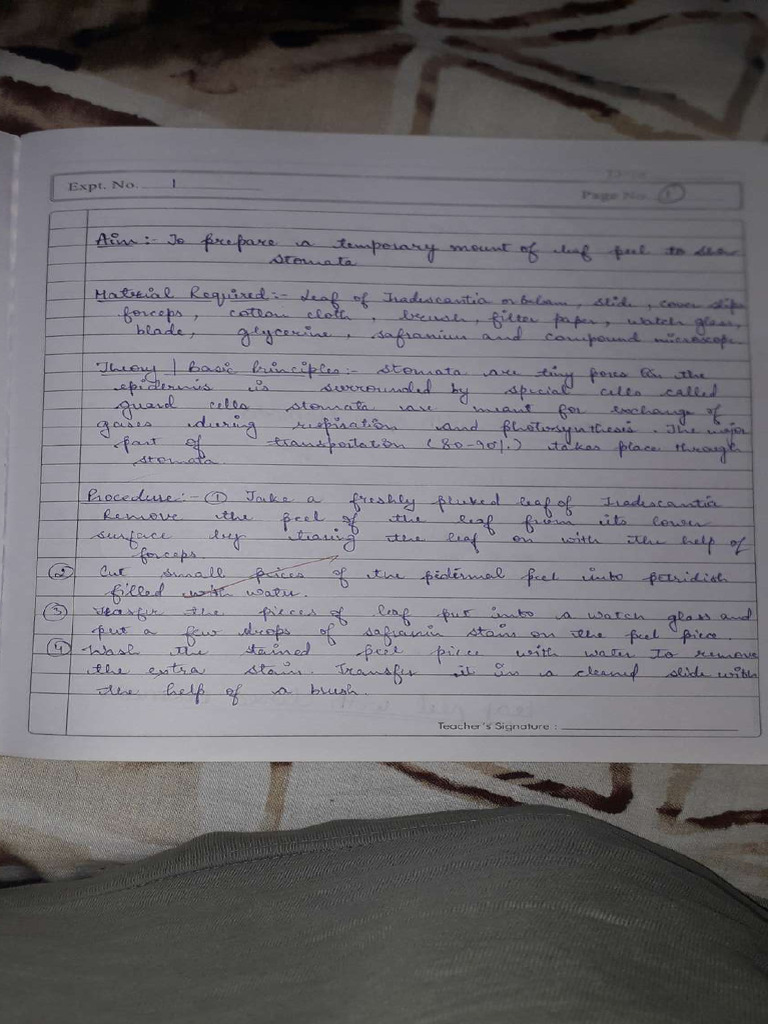 Expt. No. 1
Page No. 1
Aim:- To prepare a temporary mount of leaf peel to show
stomata
Material Required:- Leaf of Tradescantia or Balam, slide, cover slips
forceps, cotton cloth, brush, filter paper, watch glass,
blade, glycerine, safranium and compound microscope.
Theory / Basic Principles:- stomata are tiny pores in the
epidermis is surrounded by special cells called
guard cells stomata are meant for exchange of
gases during respiration and photosynthesis. The major
part of transpoitation (80-90%) takes place through
stomata.
Procedure:- ① Take a freshly pluked leaf of Tradescantia
Remove the peel of the leaf from its lower
surface by tearing the leaf on with the help of
forceps
② Cut small pieces of the pidermal peel into petridish
filled with water.
③ the pieces of leaf put into a watch glass and
put a few drops of safranin stain on the peel piece.
④ Wash the stained peel piece with water to remove
the extra stain. Transfer it in a cleaned slide with
the help of a brush.
Teacher's Signature :